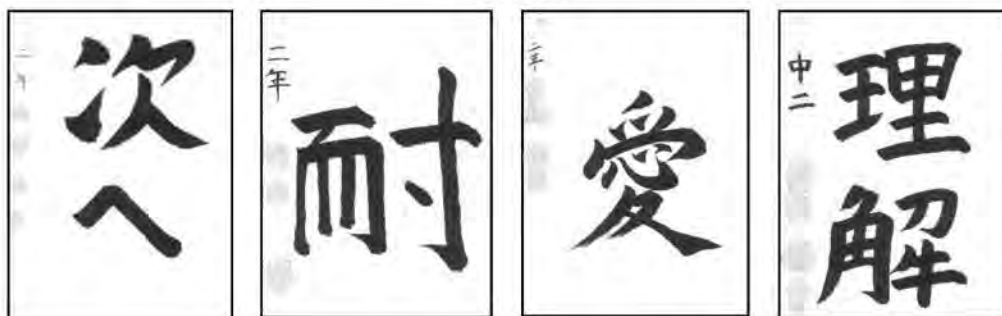 次へ
二年
耐
二年
愛
中二
理解